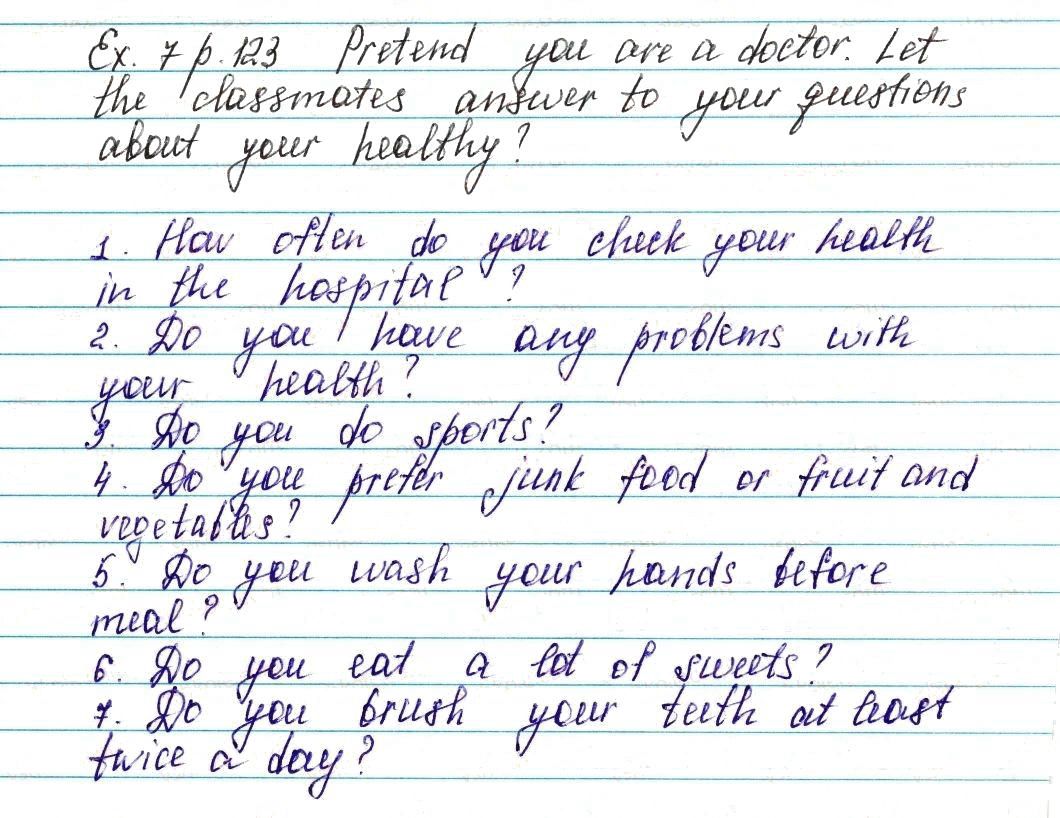 Ex. 7 p. 123 Pretend you are a doctor. Let
the classmates answer to your questions
about your healthy?
1. How often do you check your health
in the hospital?
2. Do you have any problems with
your health?
3. Do you do sports?
4. Do you prefer junk food or fruit and
vegetables?
5. Do you wash your hands before
meal?
6. Do you eat a lot of sweets?
7. Do you brush your teeth at least
twice a day?